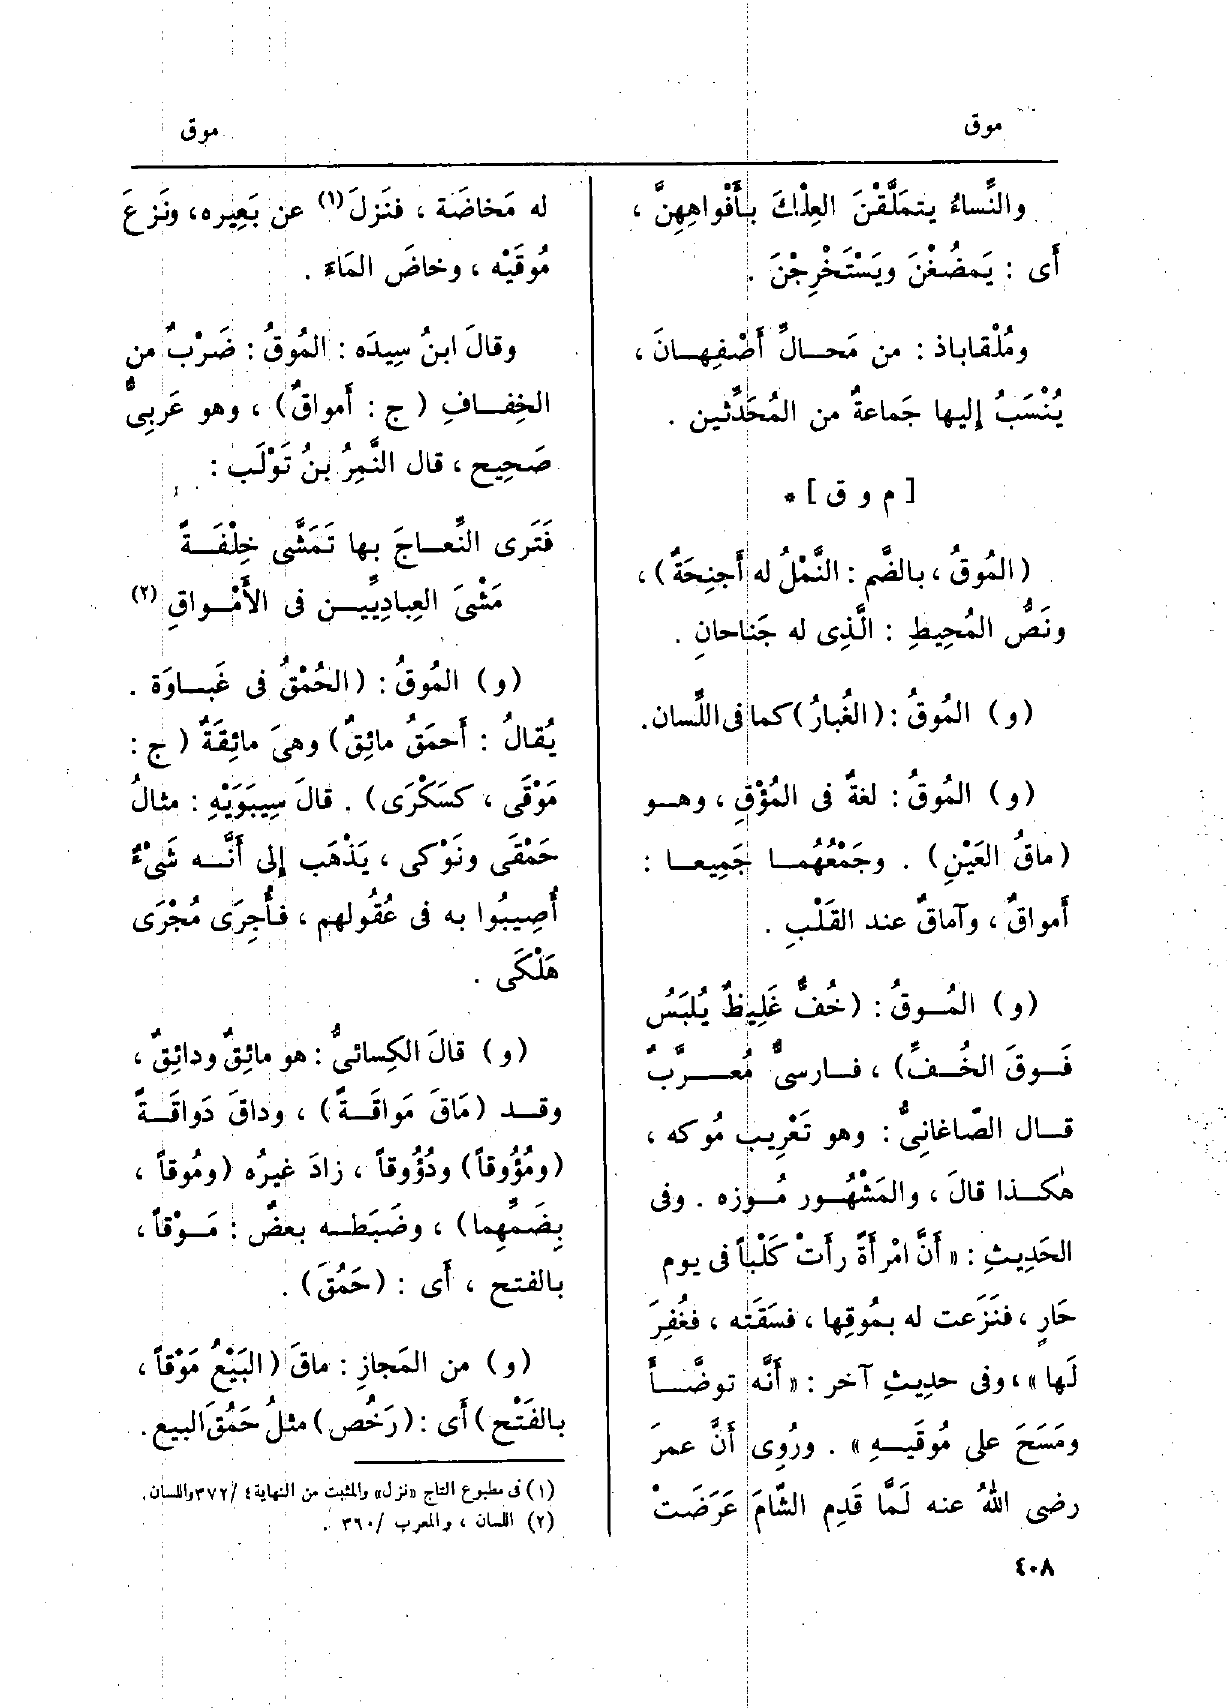 موق
موق
والنِّساءُ يتملَّقْنَ العِلْكَ بأَفْواهِهِنَّ ،
أَى : يَمضُغْنَ ويَسْتَخْرِجْنَ .
ومُلْقاباذ : من مَحالِّ أَصْفِهانَ ،
يُنْسَبُ إليها جَماعةٌ من المُحَدِّثين .
[ م و ق ] *
(المُوقُ ، بالضَّم : النَّمْلُ له أَجنِحَةٌ) ،
ونَصُّ المُحِيطِ : الَّذِى له جَناحانِ .
(و) المُوقُ : (الغُبارُ) كما فى اللسان.
(و) المُوقُ : لغةٌ فى المُؤْقِ ، وهو
(ماقُ العَيْنِ) . وجَمْعُهُما جَمِيعا :
أَمواقٌ ، وآماقٌ عند القَلْبِ .
(و) المُوقُ : (خُفٌّ غَلِيظٌ يُلبَسُ
فَوقَ الخُفِّ) ، فارسىٌّ مُعرَّبٌ
قال الصّاغانِىُّ : وهو تَعْرِيب مُوكه ،
هٰكذا قالَ ، والمَشْهُور مُوزه . وفى
الحَدِيثِ : «أَنَّ امْرأَةً رأَتْ كَلْباً فى يوم
حَارٍ ، فنَزَعت له بمُوقِها ، فسَقَتْه ، فغُفِرَ
لَها»، وفى حدِيثِ آخر : «أَنَّه توضَّأَ
ومَسَحَ على مُوقَيهِ» . ورُوِى أَنَّ عمرَ
رضى اللهُ عنه لَمَّا قَدِم الشَّامَ عَرَضَتْ
له مَخاضَة ، فنَزلَ (١) عن بَعِيره، ونَزعَ
مُوقَيْه ، وخاضَ المَاء .
وقالَ ابنُ سِيدَه : المُوقُ : ضَرْبٌ من
الخِفافِ ( ج : أَمواقٌ ) ، وهو عَربِىٌّ
صَحِيح ، قال النَّمِرُ بنُ تَوْلَب :
فَتَرى النِّعاجَ بها تَمَشَّى خِلْفَةً
مَشْىَ العِبادِيِّين فى الأَمْواقِ (٢)
(و) المُوقُ : (الحُمْقُ فى غَباوَة .
يُقالُ : أَحمَقُ مائِقٌ) وهىَ مائِقَةٌ ( ج :
مَوْقَى ، كسَكْرَى) . قالَ سِيبَوَيْهِ : مثالُ
حَمْقَى ونَوْكى ، يَذْهَب إلى أَنَّه شَىْءٌ
أُصِيبُوا به فى عُقُولهم ، فأُجِرَى مُجْرَى
هَلْكَى .
(و) قالَ الكِسائىُّ : هو مائِقٌ ودائِقٌ ،
وقد (مَاقَ مَواقَةً) ، وداقَ دَواقَةً
(ومُؤُوقاً) ودُؤُوقاً ، زادَ غيرُه (ومُوقاً ،
بِضَمِّهِما) ، وضَبَطه بعضٌ : مَوْقاً ،
بالفتح ، أَى : (حَمُقَ) .
(و) من المَجازِ : ماقَ (البَيْعُ مَوْقاً ،
بالفَتْح) أَى : (رَخُص) مثلُ حَمُقَ البيع.
(١) فى مطبوع التاج «نزل» والمثبت من النهاية ٤ /٣٧٢ واللسان .
(٢) اللسان ، والمعرب /٣٦٠ .
٤٠٨